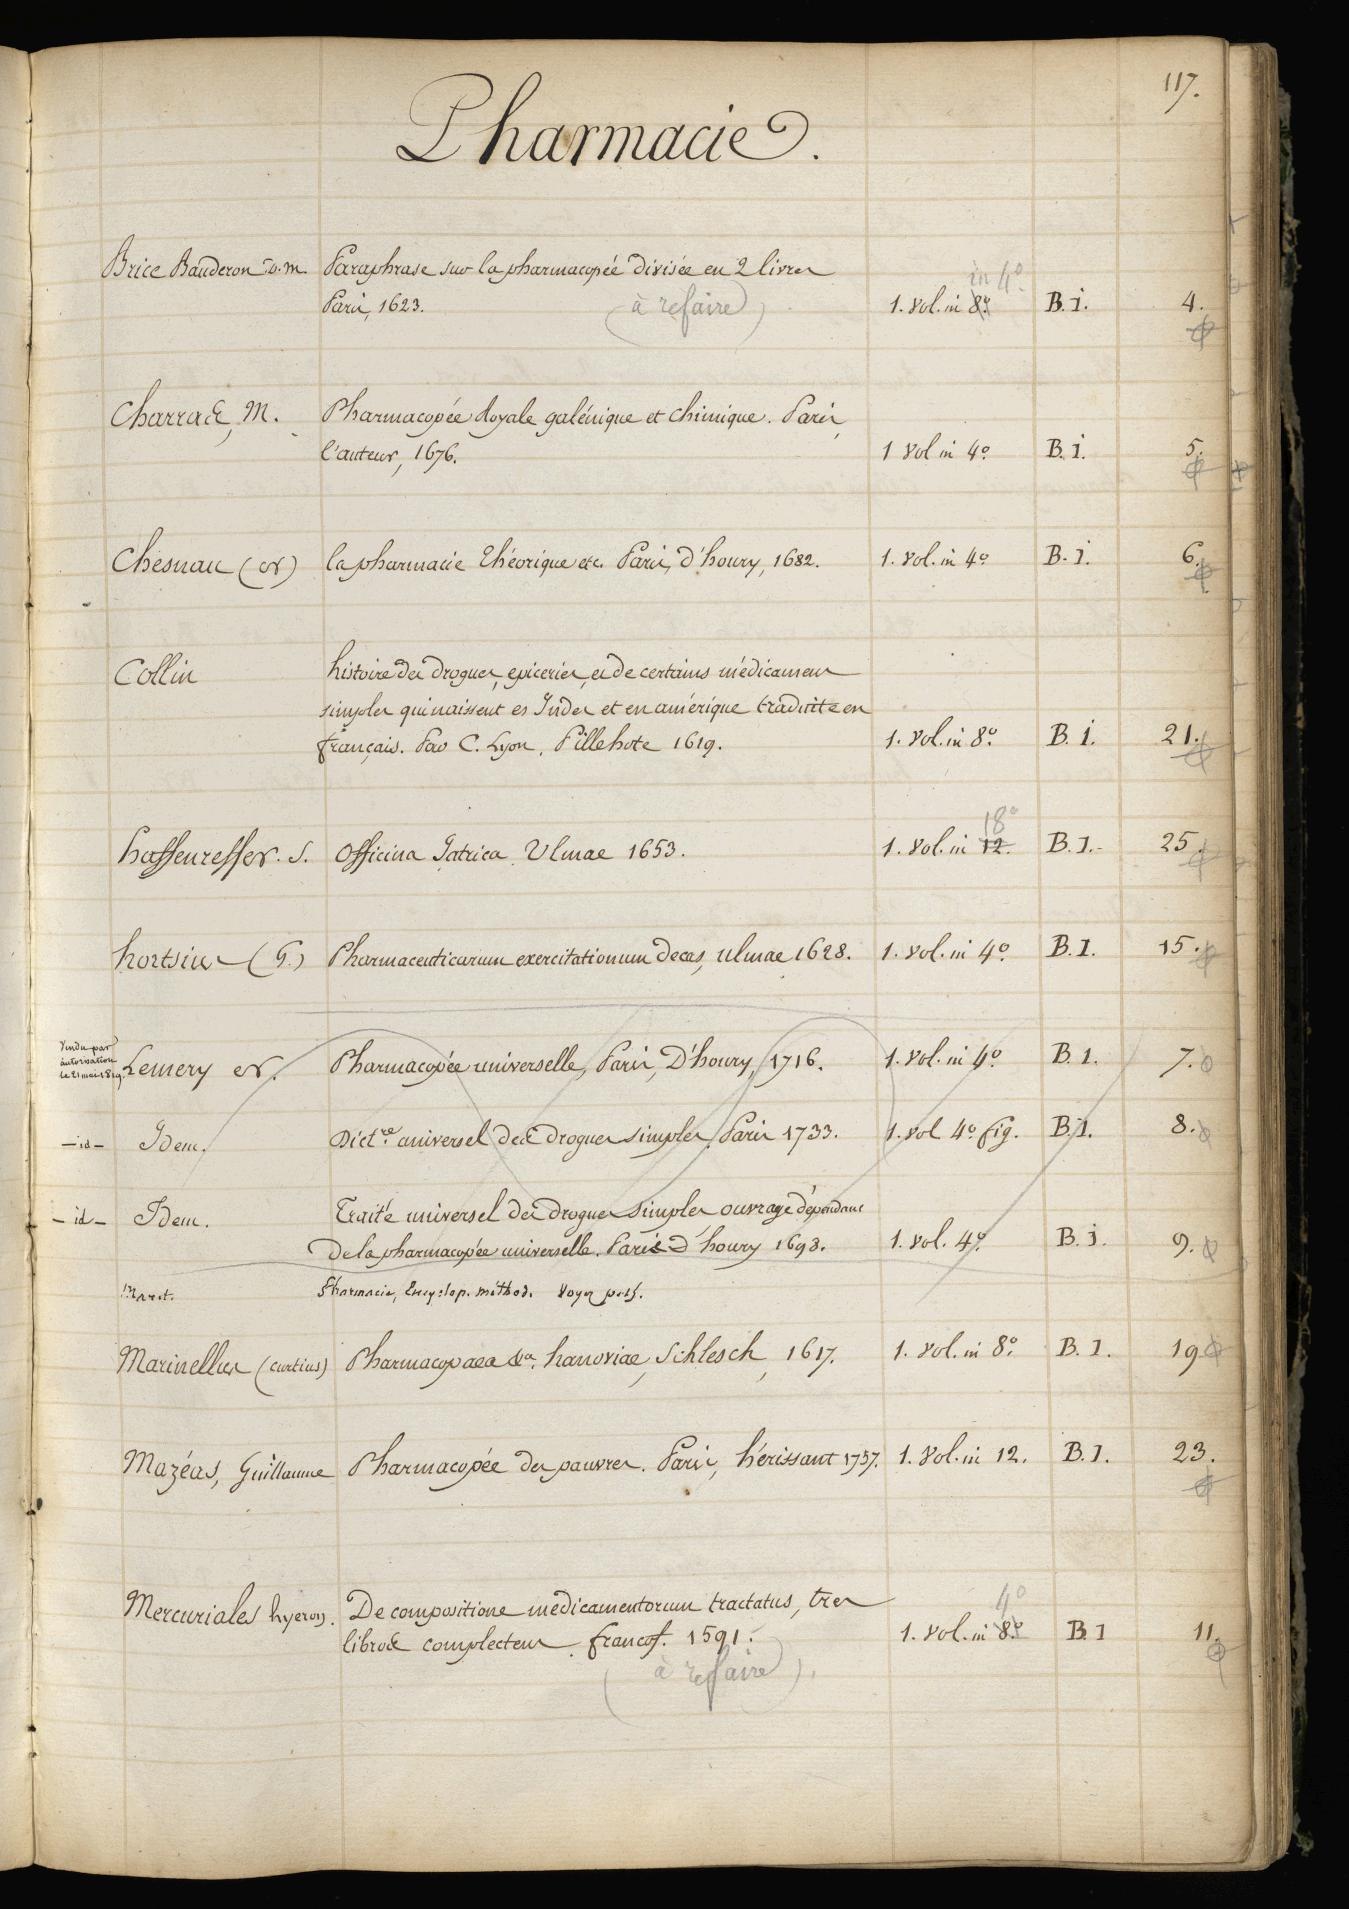 117.
Pharmacie.
Brice Bauderon D.M. Paraphrase sur la pharmacopée divisée en 2 livres
in 4º
Paris, 1623. (à refaire) 1. vol. in 8º. B. i. 4.
Charras, M. Pharmacopée Royale galénique et chimique. Paris,
l'auteur, 1676. 1 vol in 4º B. i. 5.
Chesnau (or) la pharmacie théorique etc. Paris, d'houry, 1682. 1. vol. in 4º B. i. 6.
Collin histoire des drogues, epiceries, et de certains médicamens
simples qui naissent es Indes et en amérique traduite en
français. Par C. Lyon, Pillehote 1619. 1. vol. in 8º. B. i. 21.
18º
haffenreffer. S. Officina Iatrica. Ulmae 1653. 1. vol. in 12. B. I. 25.
hortsius (G.) Pharmaceuticarum exercitationum decas, ulmae 1628. 1. vol. in 4º. B. I. 15.
Vendu par
autorisation
le 21 mai 1819.
Lemery er. Pharmacopée universelle, Paris, D'houry, 1716. 1. vol. in 4º B. I. 7.
-id- Idem. Dictre. universel des drogues simples. Paris 1733. 1. vol 4º fig. B. I. 8.
-id- Idem. Traité universel des drogues simples ouvrage dépendant
De la pharmacopée universelle. Paris D'houry 1698. 1. vol. 4º. B. i. 9.
Maret. Pharmacie, Encyclop. méthod. Voyez
Marinellus (curtius) Pharmacopaea hanoviae, Schlesch, 1617. 1. vol. in 8º. B. I. 19
Mazéas, Guillaume Pharmacopée des pauvres. Paris, hérissant 1757. 1. vol. in 12. B. I. 23.
Mercuriales hyeron. De compositione medicamentorum tractatus, tres
4º
libros complectens. francof. 1591. 1. vol. in 8º B. I 11.
(à refaire).